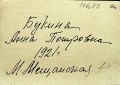 Букина
Анна Петровна
1921г
М. Мещанская